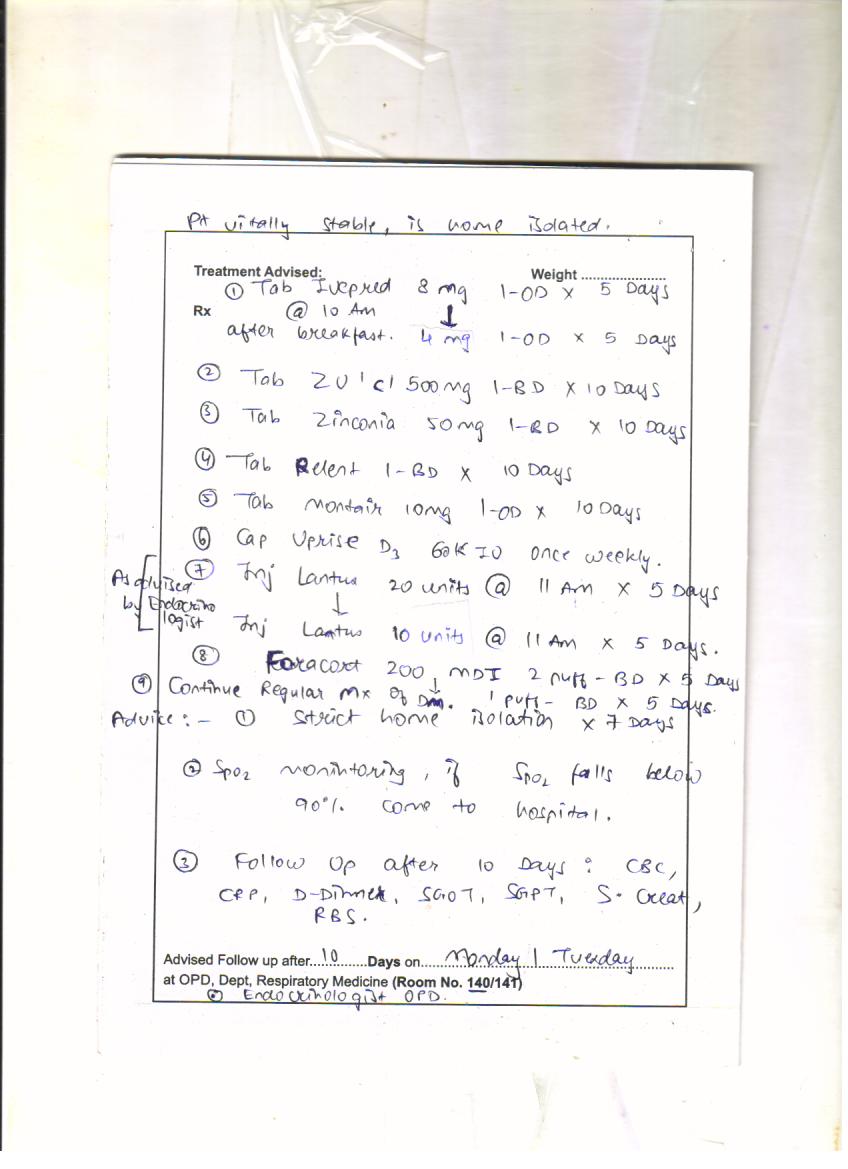 Pt vitally stable, is home isolated.
Treatment Advised: Weight ......................
① Tab Ivepred 8 mg 1-OD x 5 Days
Rx @ 10 Am
after breakfast. ↓ 4 mg 1-OD x 5 Days
② Tab 500mg 1-BD x 10 Days
③ Tab Zinconia 50mg 1-BD x 10 Days
④ Tab Relent 1-BD x 10 Days
⑤ Tab Montair 10mg 1-OD x 10 Days
⑥ Cap Uprise D3 60K IU once weekly.
As advised by Endocrinologist
⑦ Inj Lantus 20 units @ 11 Am x 5 Days
↓
Inj Lantus 10 units @ 11 Am x 5 Days.
⑧ Foracort 200 MDI 2 puff - BD x 5 Days
↓ 1 puff - BD x 5 Days.
⑨ Continue Regular Mx of Dm.
Advice :- ① Strict home isolation x 7 Days
② SpO2 monintoring, if SpO2 falls below
90% come to hospital.
③ Follow Up after 10 Days : CBC,
CRP, D-Dimer, SGOT, SGPT, S. Creat,
RBS.
Advised Follow up after...10.......Days on....Monday / Tuesday.........
at OPD, Dept, Respiratory Medicine (Room No. 140/141)
Endocrinologist OPD.